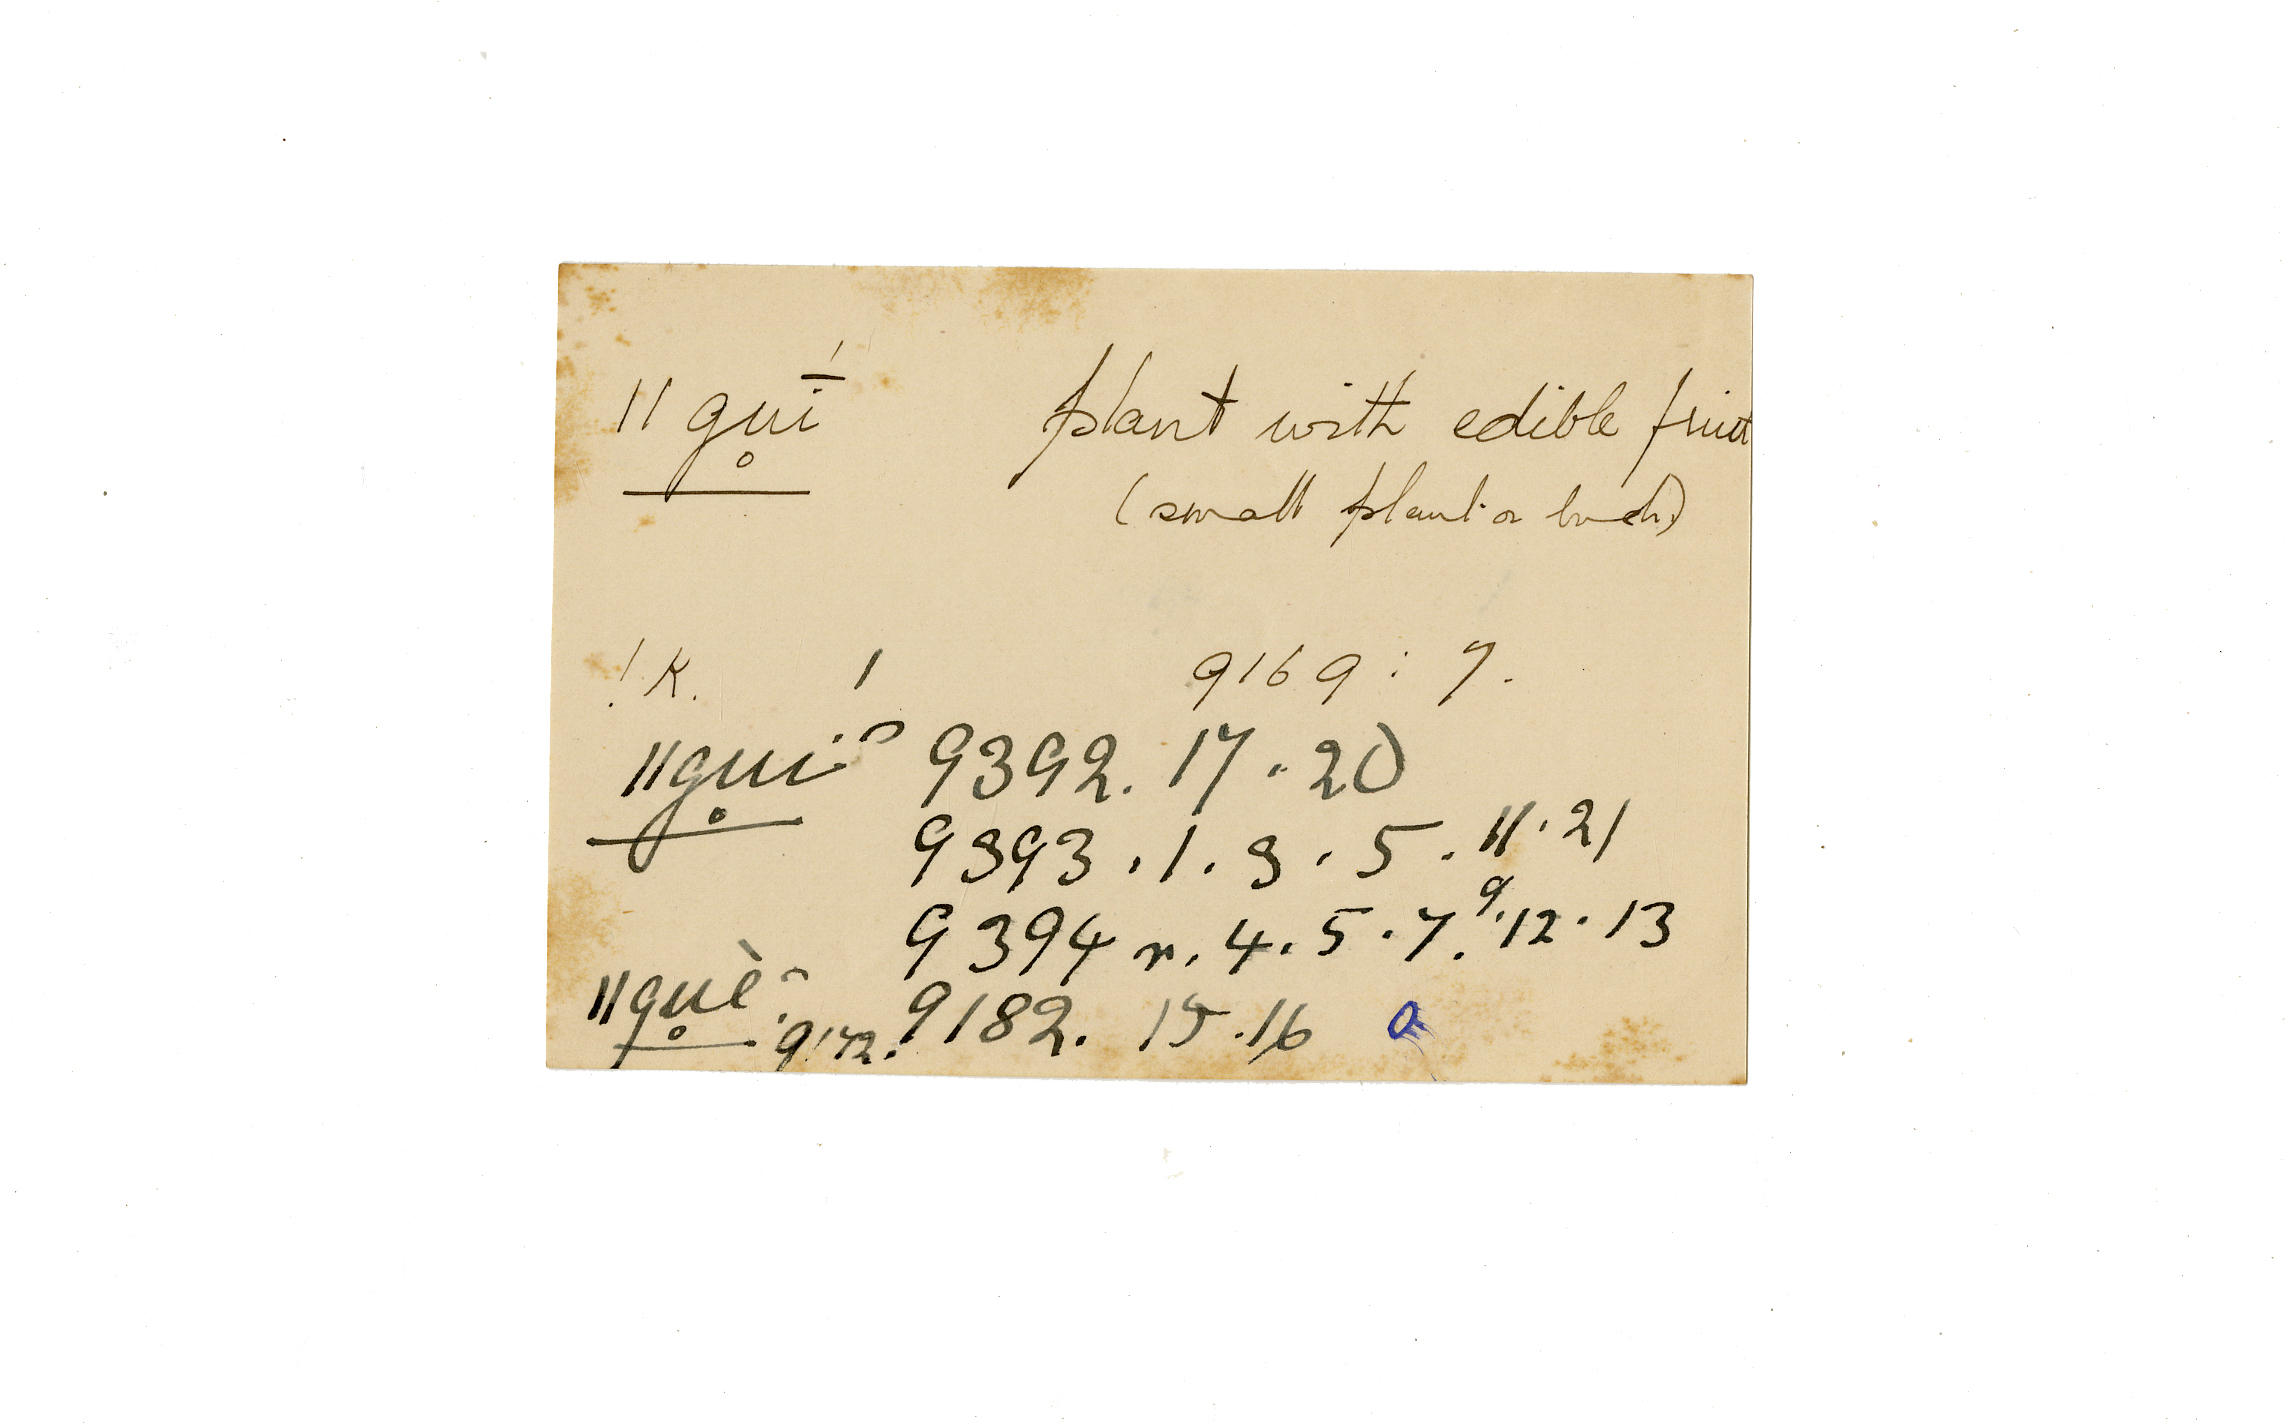 ǁgui̊̄́ plant with edible fruit
(small plant or bush)
!K. 9169 : 7.
ǁgu̥í ̑ 9392. 17 . 20
9393 . 1 . 3 . 5 . 11 . 21
9394 r. 4 . 5 . 7 . 9 . 12 . 13
ǁgu̥è ̑ 9182. 15 . 16
9172.